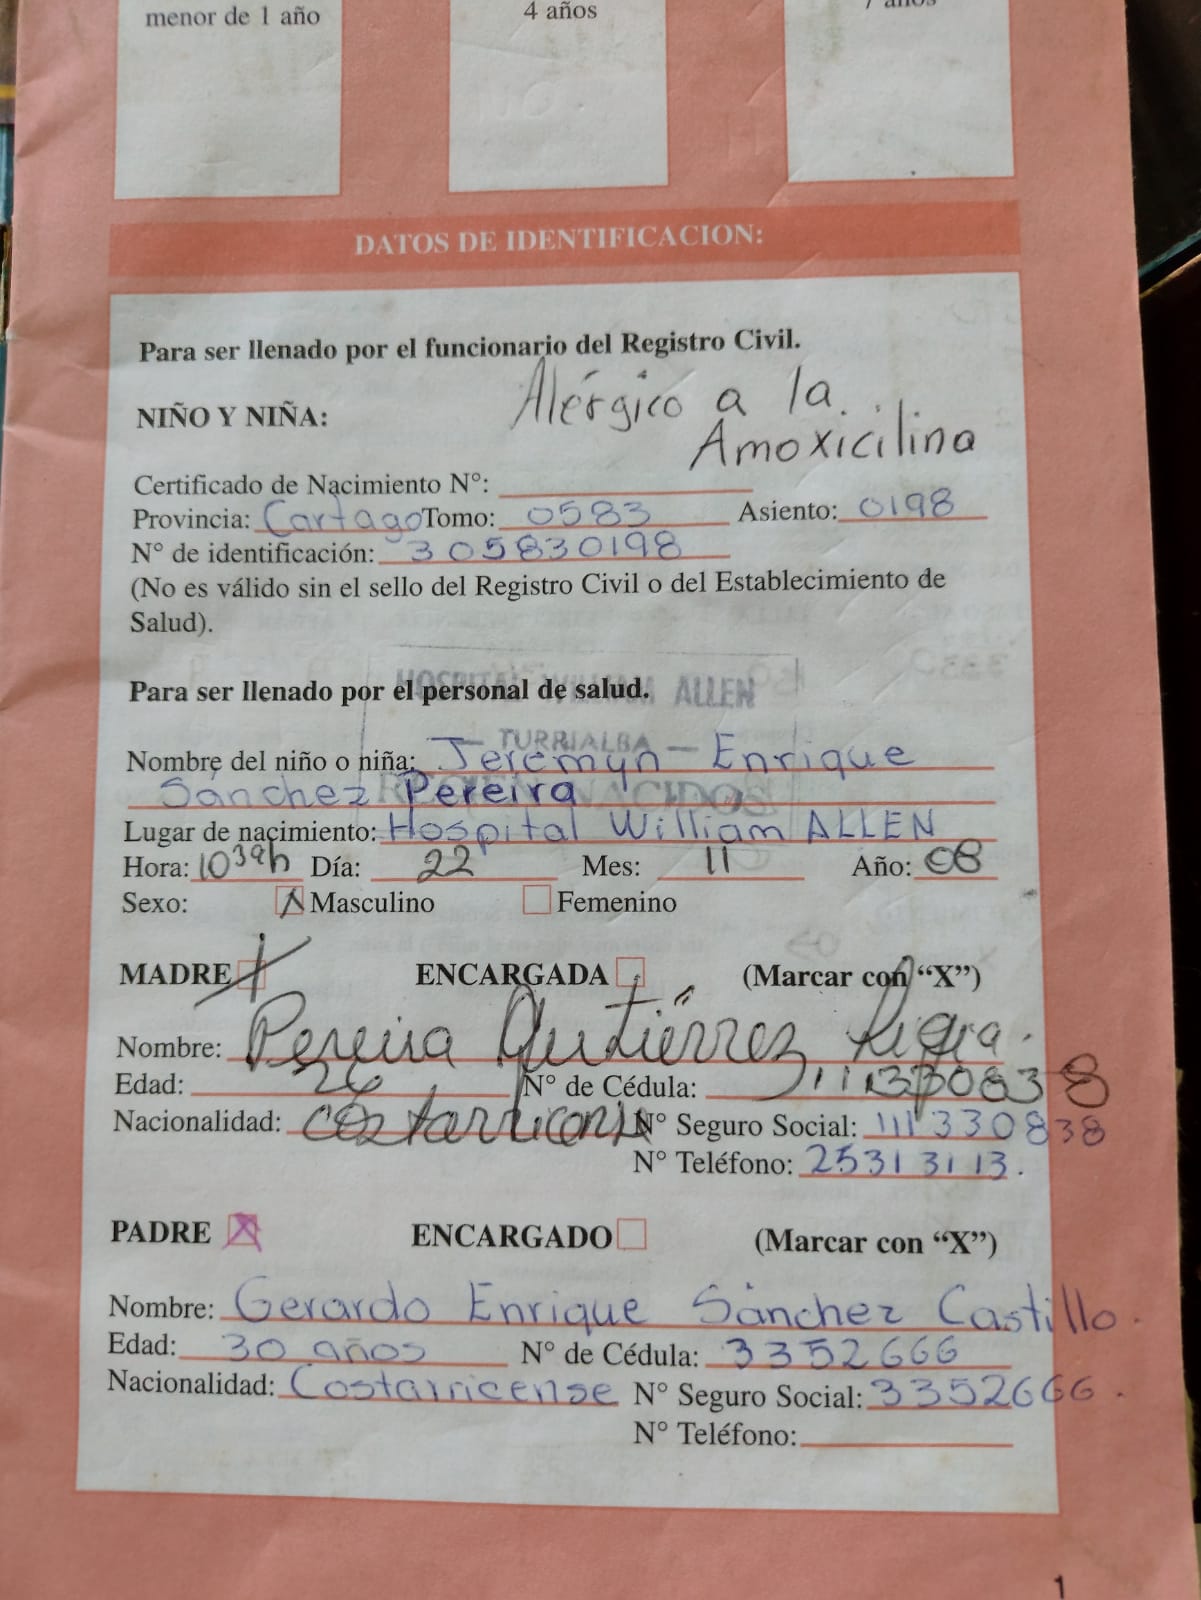 menor de 1 año
4 años
7 años
DATOS DE IDENTIFICACION:
Para ser llenado por el funcionario del Registro Civil.
Alérgico a la
NIÑO Y NIÑA:
Amoxicilina
Certificado de Nacimiento N°:
Provincia: Cartago Tomo: 0583 Asiento: 0198
N° de identificación: 305830198
(No es válido sin el sello del Registro Civil o del Establecimiento de
Salud).
HOSPITAL WILLIAM ALLEN
Para ser llenado por el personal de salud.
TURRIALBA
Nombre del niño o niña: Jeremyn Enrique
RECIEN NACIDOS
Sánchez Pereira
Lugar de nacimiento: Hospital William ALLEN
Hora: 10 39h Día: 22 Mes: 11 Año: 08
Sexo: X Masculino Femenino
MADRE X ENCARGADA (Marcar con “X”)
Nombre: Pereira Gutiérrez
Edad: 26 N° de Cédula: 111330838
Nacionalidad: costarricense N° Seguro Social: 111330838
N° Teléfono: 25313113.
PADRE X ENCARGADO (Marcar con “X”)
Nombre: Gerardo Enrique Sánchez Castillo.
Edad: 30 años N° de Cédula: 3352666
Nacionalidad: Costarricense N° Seguro Social: 3352666.
N° Teléfono:
1